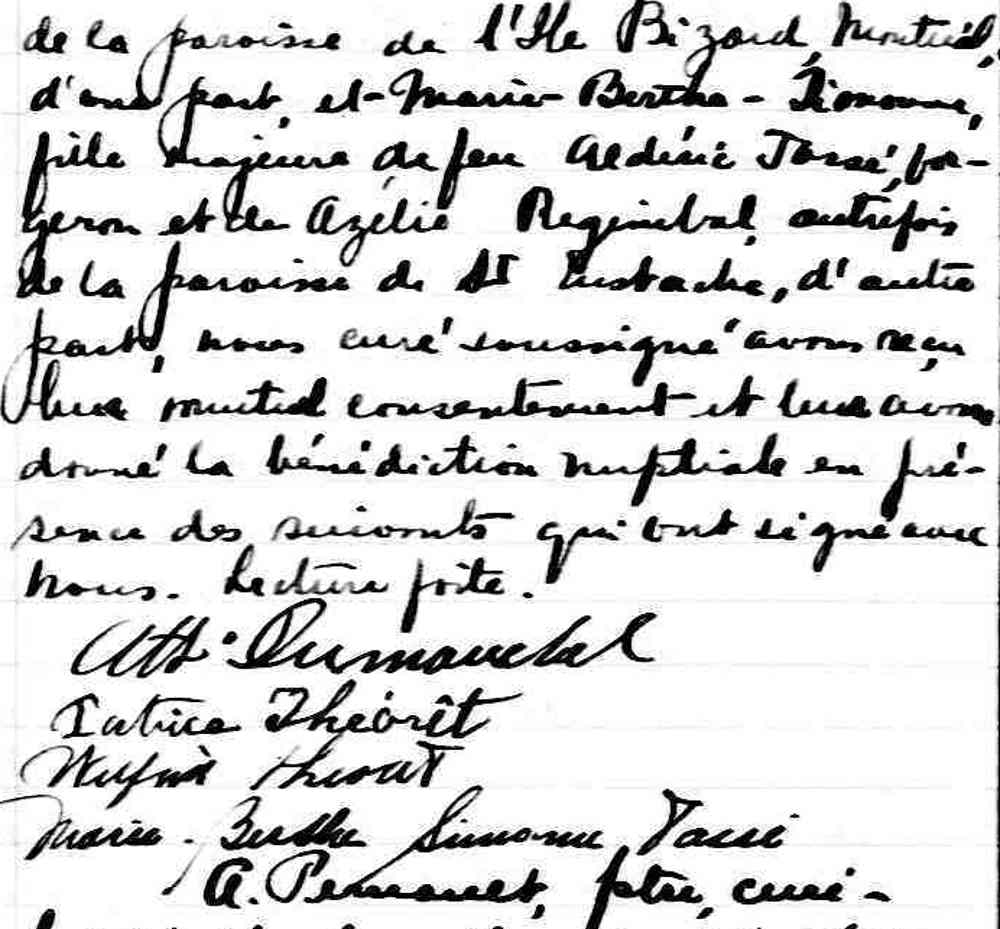 de la paroisse de l'Ile Bizard, Montréal,
d'une part, et Marie-Bertha-Simonne,
fille majeure de feu Aldéric Tassé, for-
geron et de Azélie Reginbal, autrefois
de la paroisse de St Eustache, d'autre
part, nous curé soussigné avons reçu
leur mutuel consentement et leur avons
donné la bénédiction nuptiale en pré-
sence des suivants qui ont signé avec
nous. Lecture faite.
Ath. Dumouchel
Patrice Théorêt
Wilfrid Théorêt
Marie-Berthe Simonne Tassé
A. , ptre, curé-